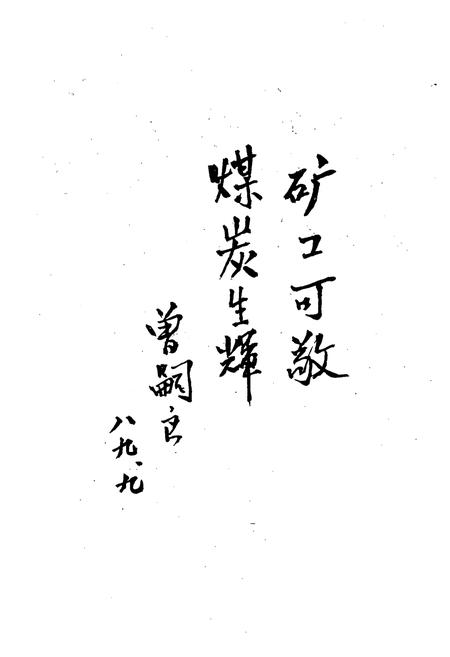 矿工可敬
煤炭生辉
曾嗣良
八九、九